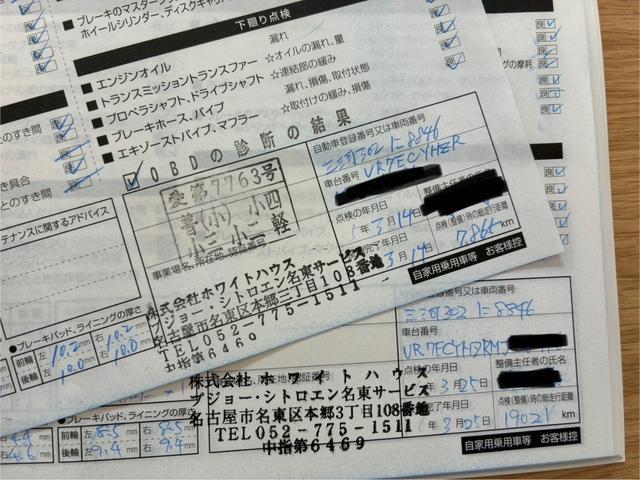 ブレーキのマスターシ
ホイールシリンダー、ディスクキャ
下廻り点検
漏れ
■ エンジンオイル
☆オイルの漏れ、量
■ トランスミッショントランスファー
☆連結部の緩み
■ プロペラシャフト、ドライブシャフト
漏れ、損傷、取付状態
■ ブレーキホース、パイプ
☆取付けの緩み、損傷
■ エキゾーストパイプ、マフラー
OBDの診断の結果
とのすき間
具合
とのすき間
テナンスに関するアドバイス
愛第7763号
普(小)小四
小三小二軽
事業場名、所在地、認証番号
株式会社ホワイトハウス
プジョー・シトロエン名東サービス
名古屋市名東区本郷三丁目108番地
TEL052-775-1511
中指第6469
自動車登録番号又は車両番号
三河302 に8846
車台番号
VR7ECYHZR
点検の年月日
整備主任者の氏名
3月14日
点検(整備)時の総走行距離
完了年月日
3月14日
7,865 km
自家用乗用車等 お客様控
●ブレーキパッド、ライニングの厚さ
前輪 左 10.2 mm 右 10.2 mm
後輪 左 10.0 mm 右 10.0 mm
自動車登録番号又は車両番号
三河302 に8846
車台番号
VR7ECYHZRM
点検の年月日
整備主任者の氏名
3月25日
点検(整備)時の総走行距離
完了年月日
6年3月25日
19021 km
自家用乗用車等 お客様控
株式会社ホワイトハウス
プジョー・シトロエン名東サービス
名古屋市名東区本郷3丁目108番地
TEL052-775-1511
中指第6469
●ブレーキパッド、ライニングの厚さ
前輪 左 8.5 mm 右 8.5 mm
後輪 左 9.4 mm 右 9.4 mm